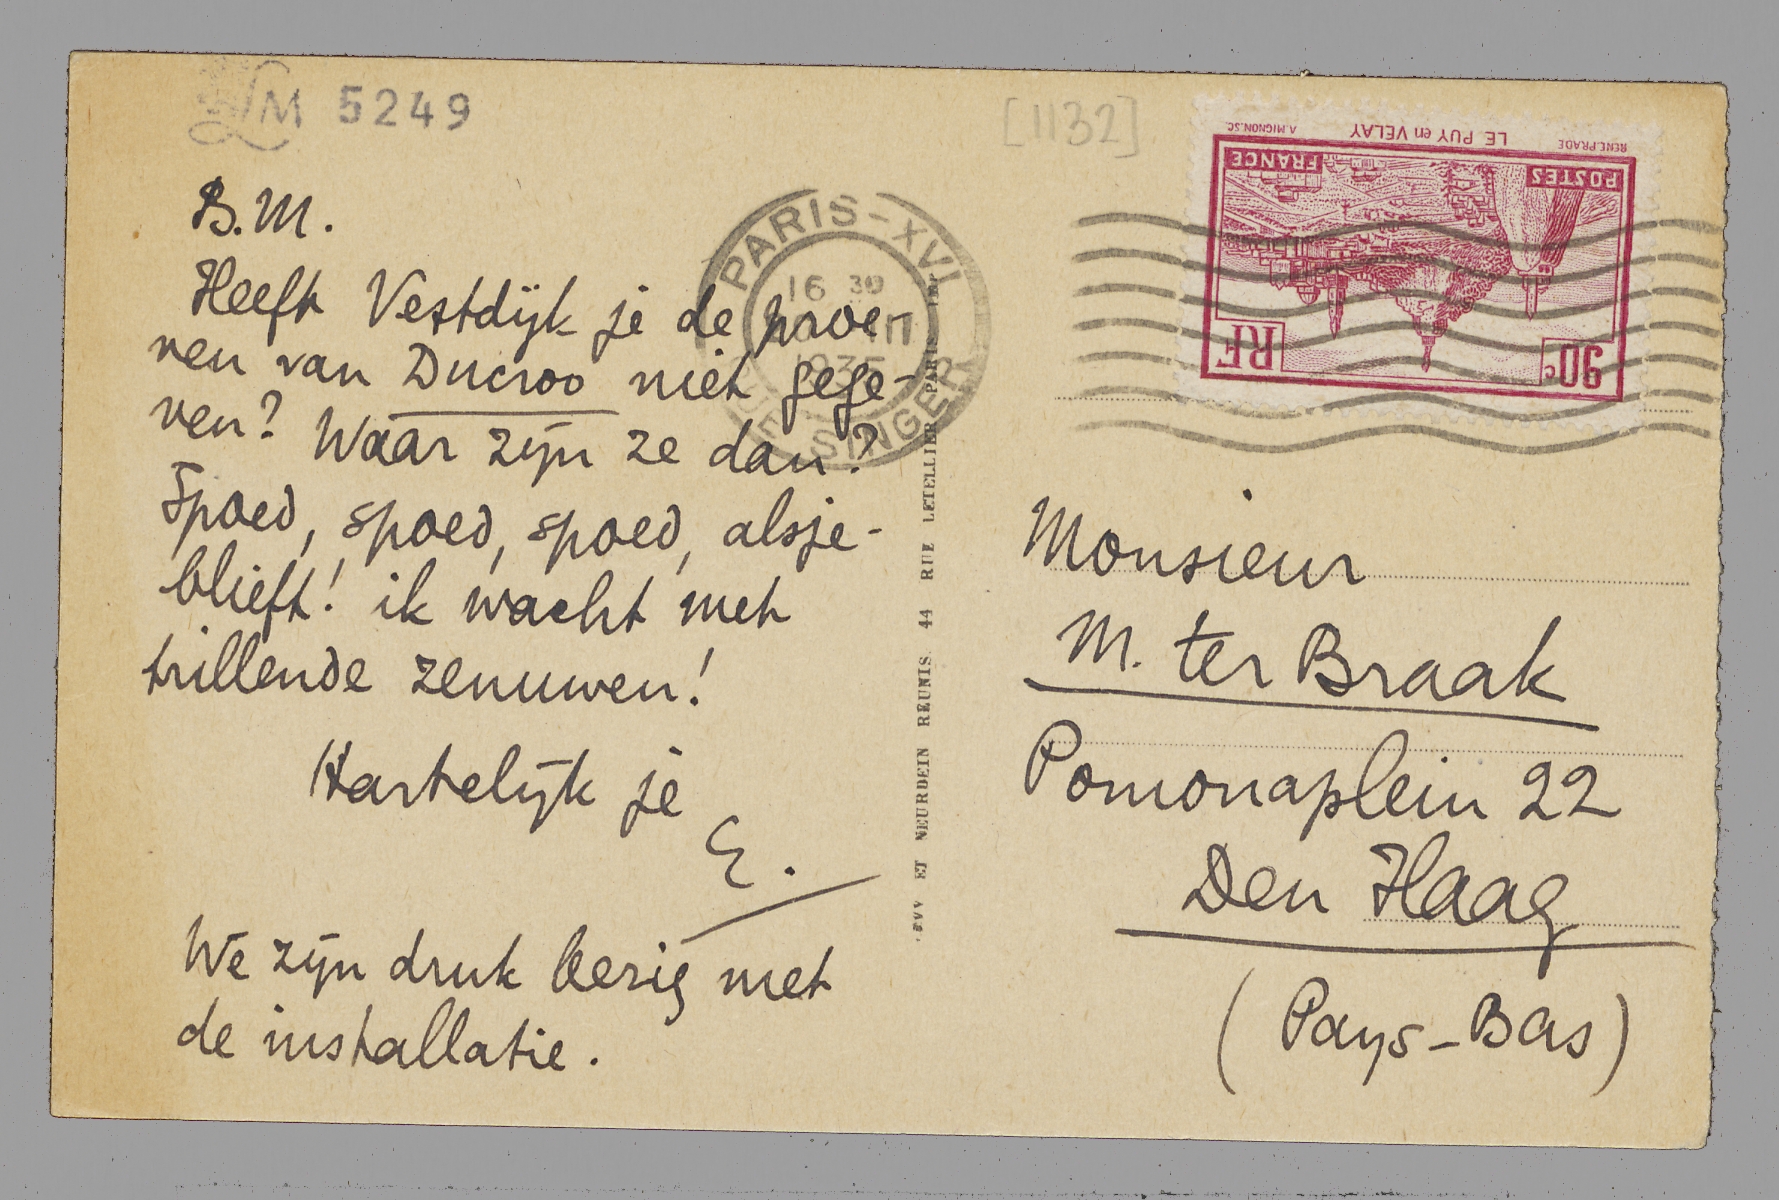 LM 5249
[1132]
B.M.
Heeft Vestdijk je de proe-
ven van Ducroo niet gege-
ven? Waar zijn ze dan?
Spoed, spoed, spoed, alsje-
blieft! ik wacht met
trillende zenuwen!
Hartelijk je
E.
We zijn druk bezig met
de installatie.
PARIS-XVI
16 30
1935
SINGER
ET NEURDEIN REUNIS. 44 RUE LETELLIER PARIS
RENE.PRADE LE PUY en VELAY A.MIGNON.SC.
POSTES FRANCE
90c RF
Monsieur
M. ter Braak
Pomonaplein 22
Den Haag
(Pays-Bas)